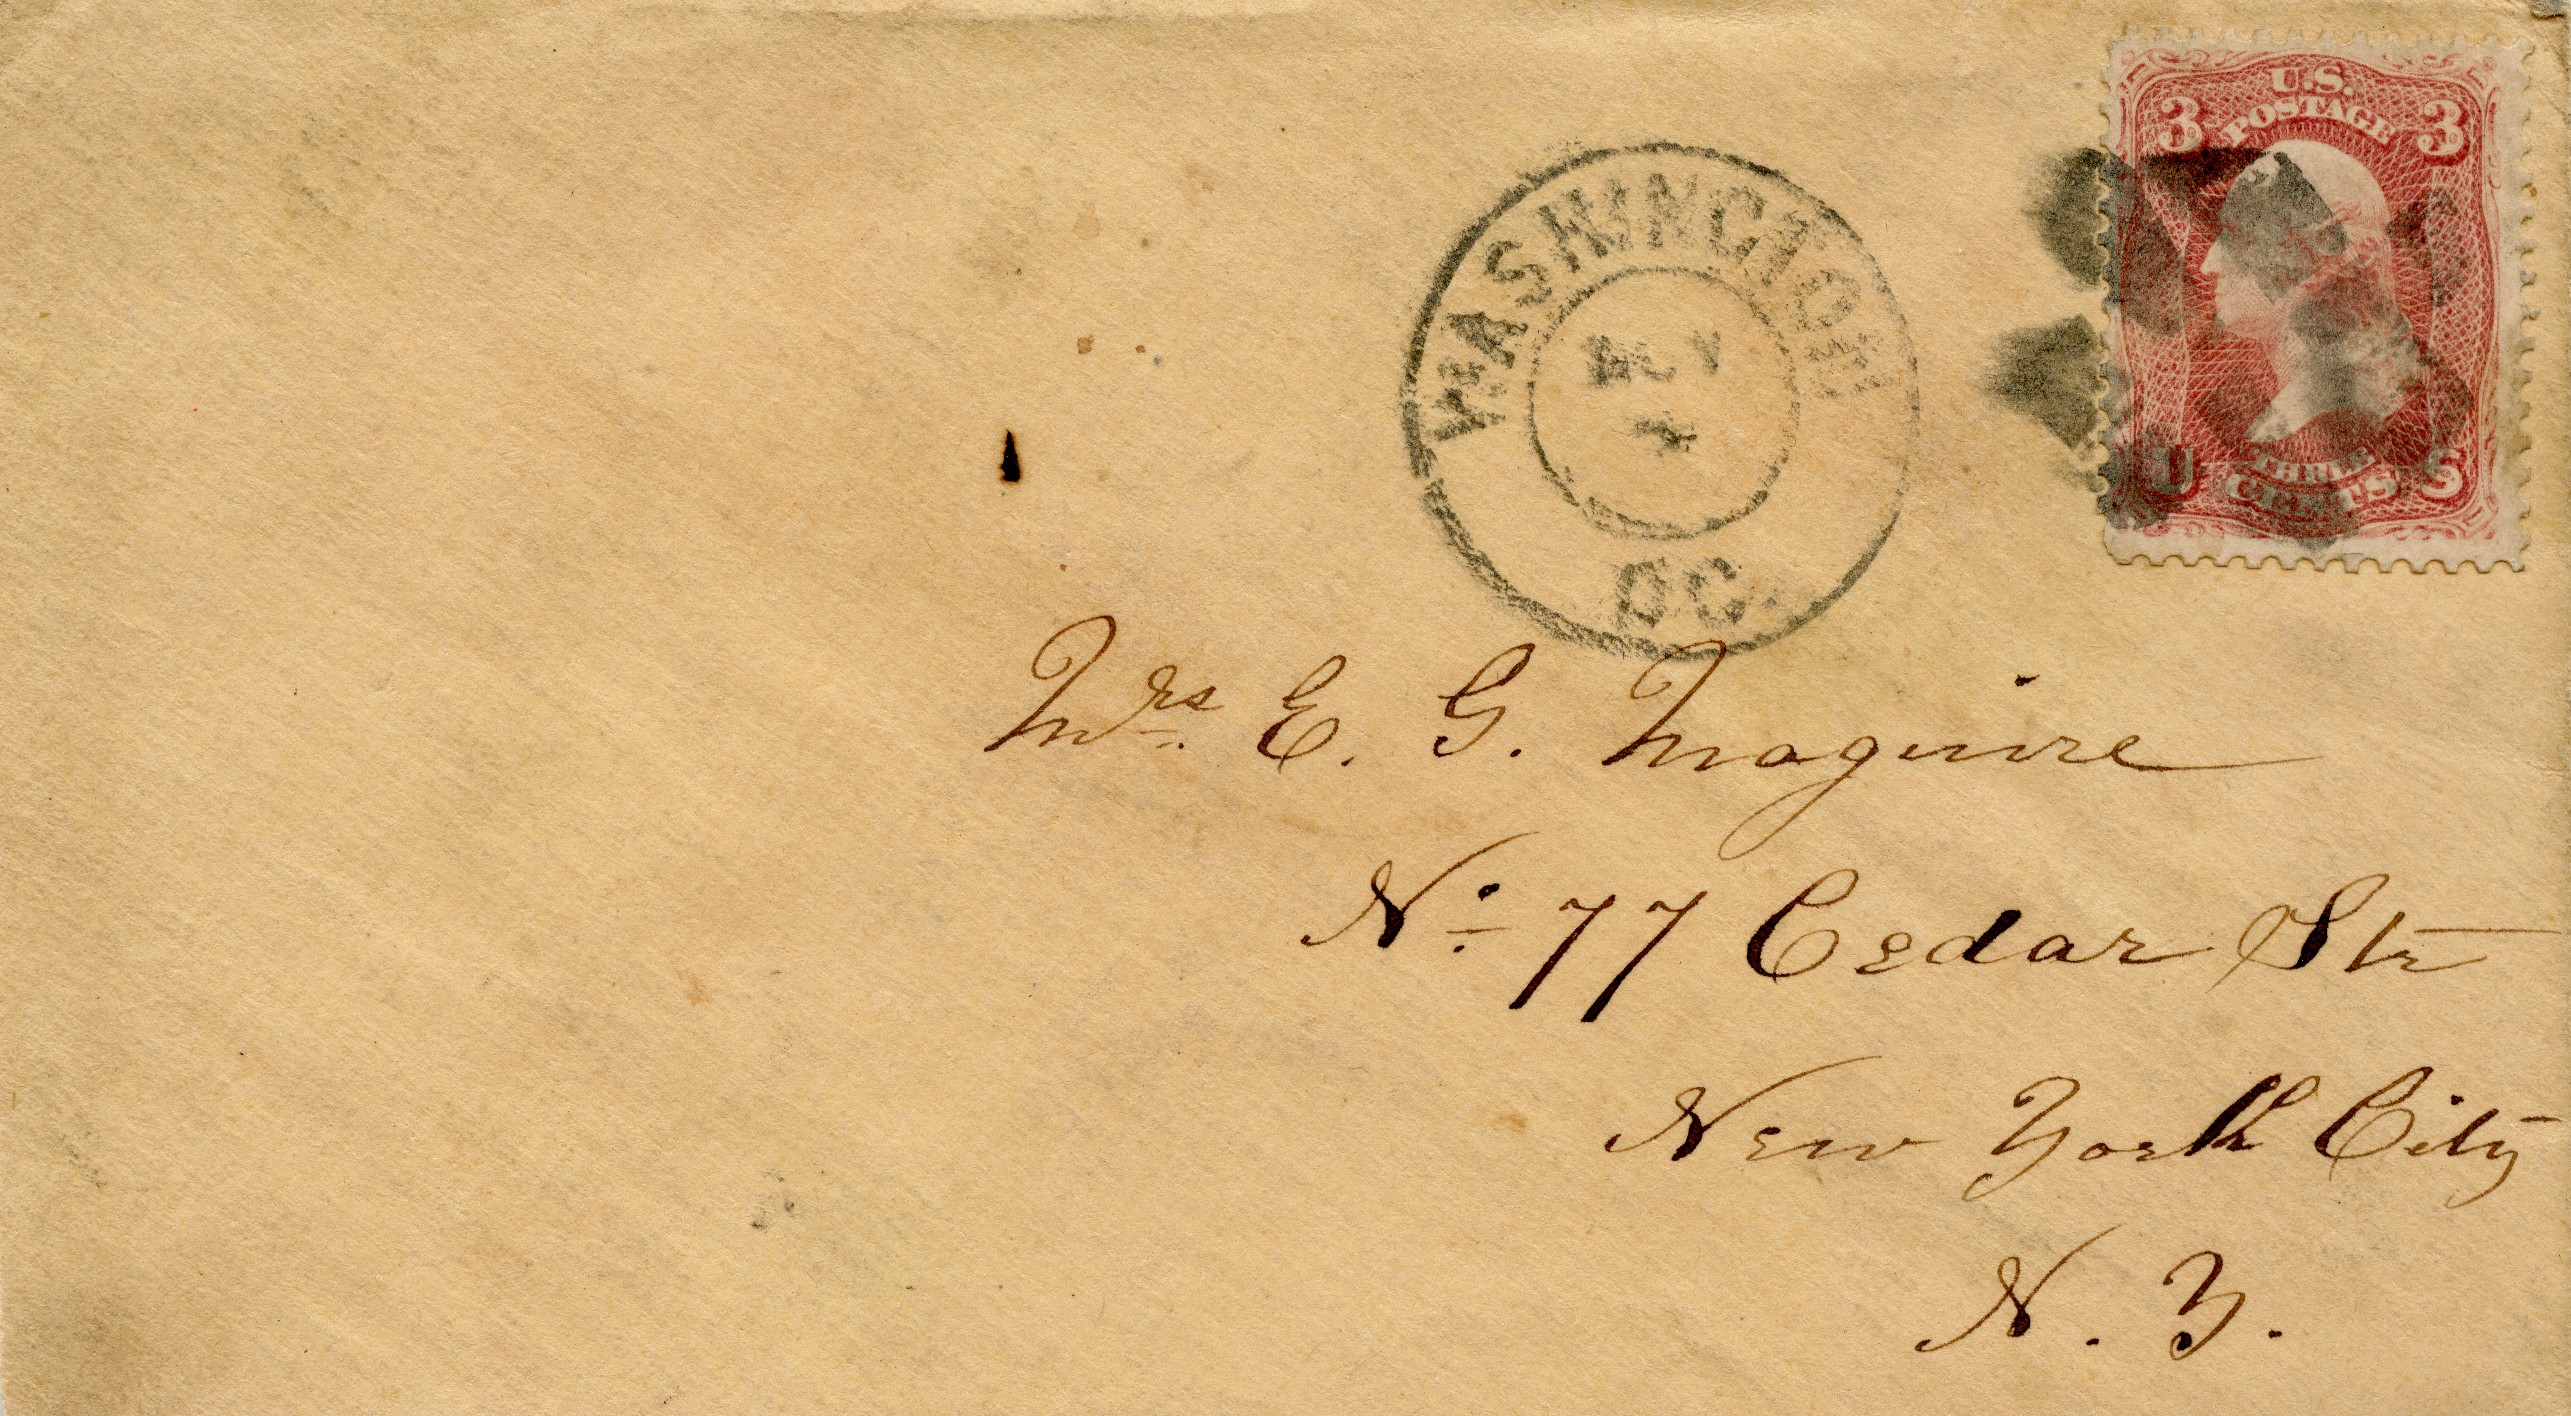 U.S.
POSTAGE
3 3
U S
THREE
CENTS
WASHINGTON
DC.
Mrs. E. G. Maguire
No. 77 Cedar Str
New York City
N. Y.